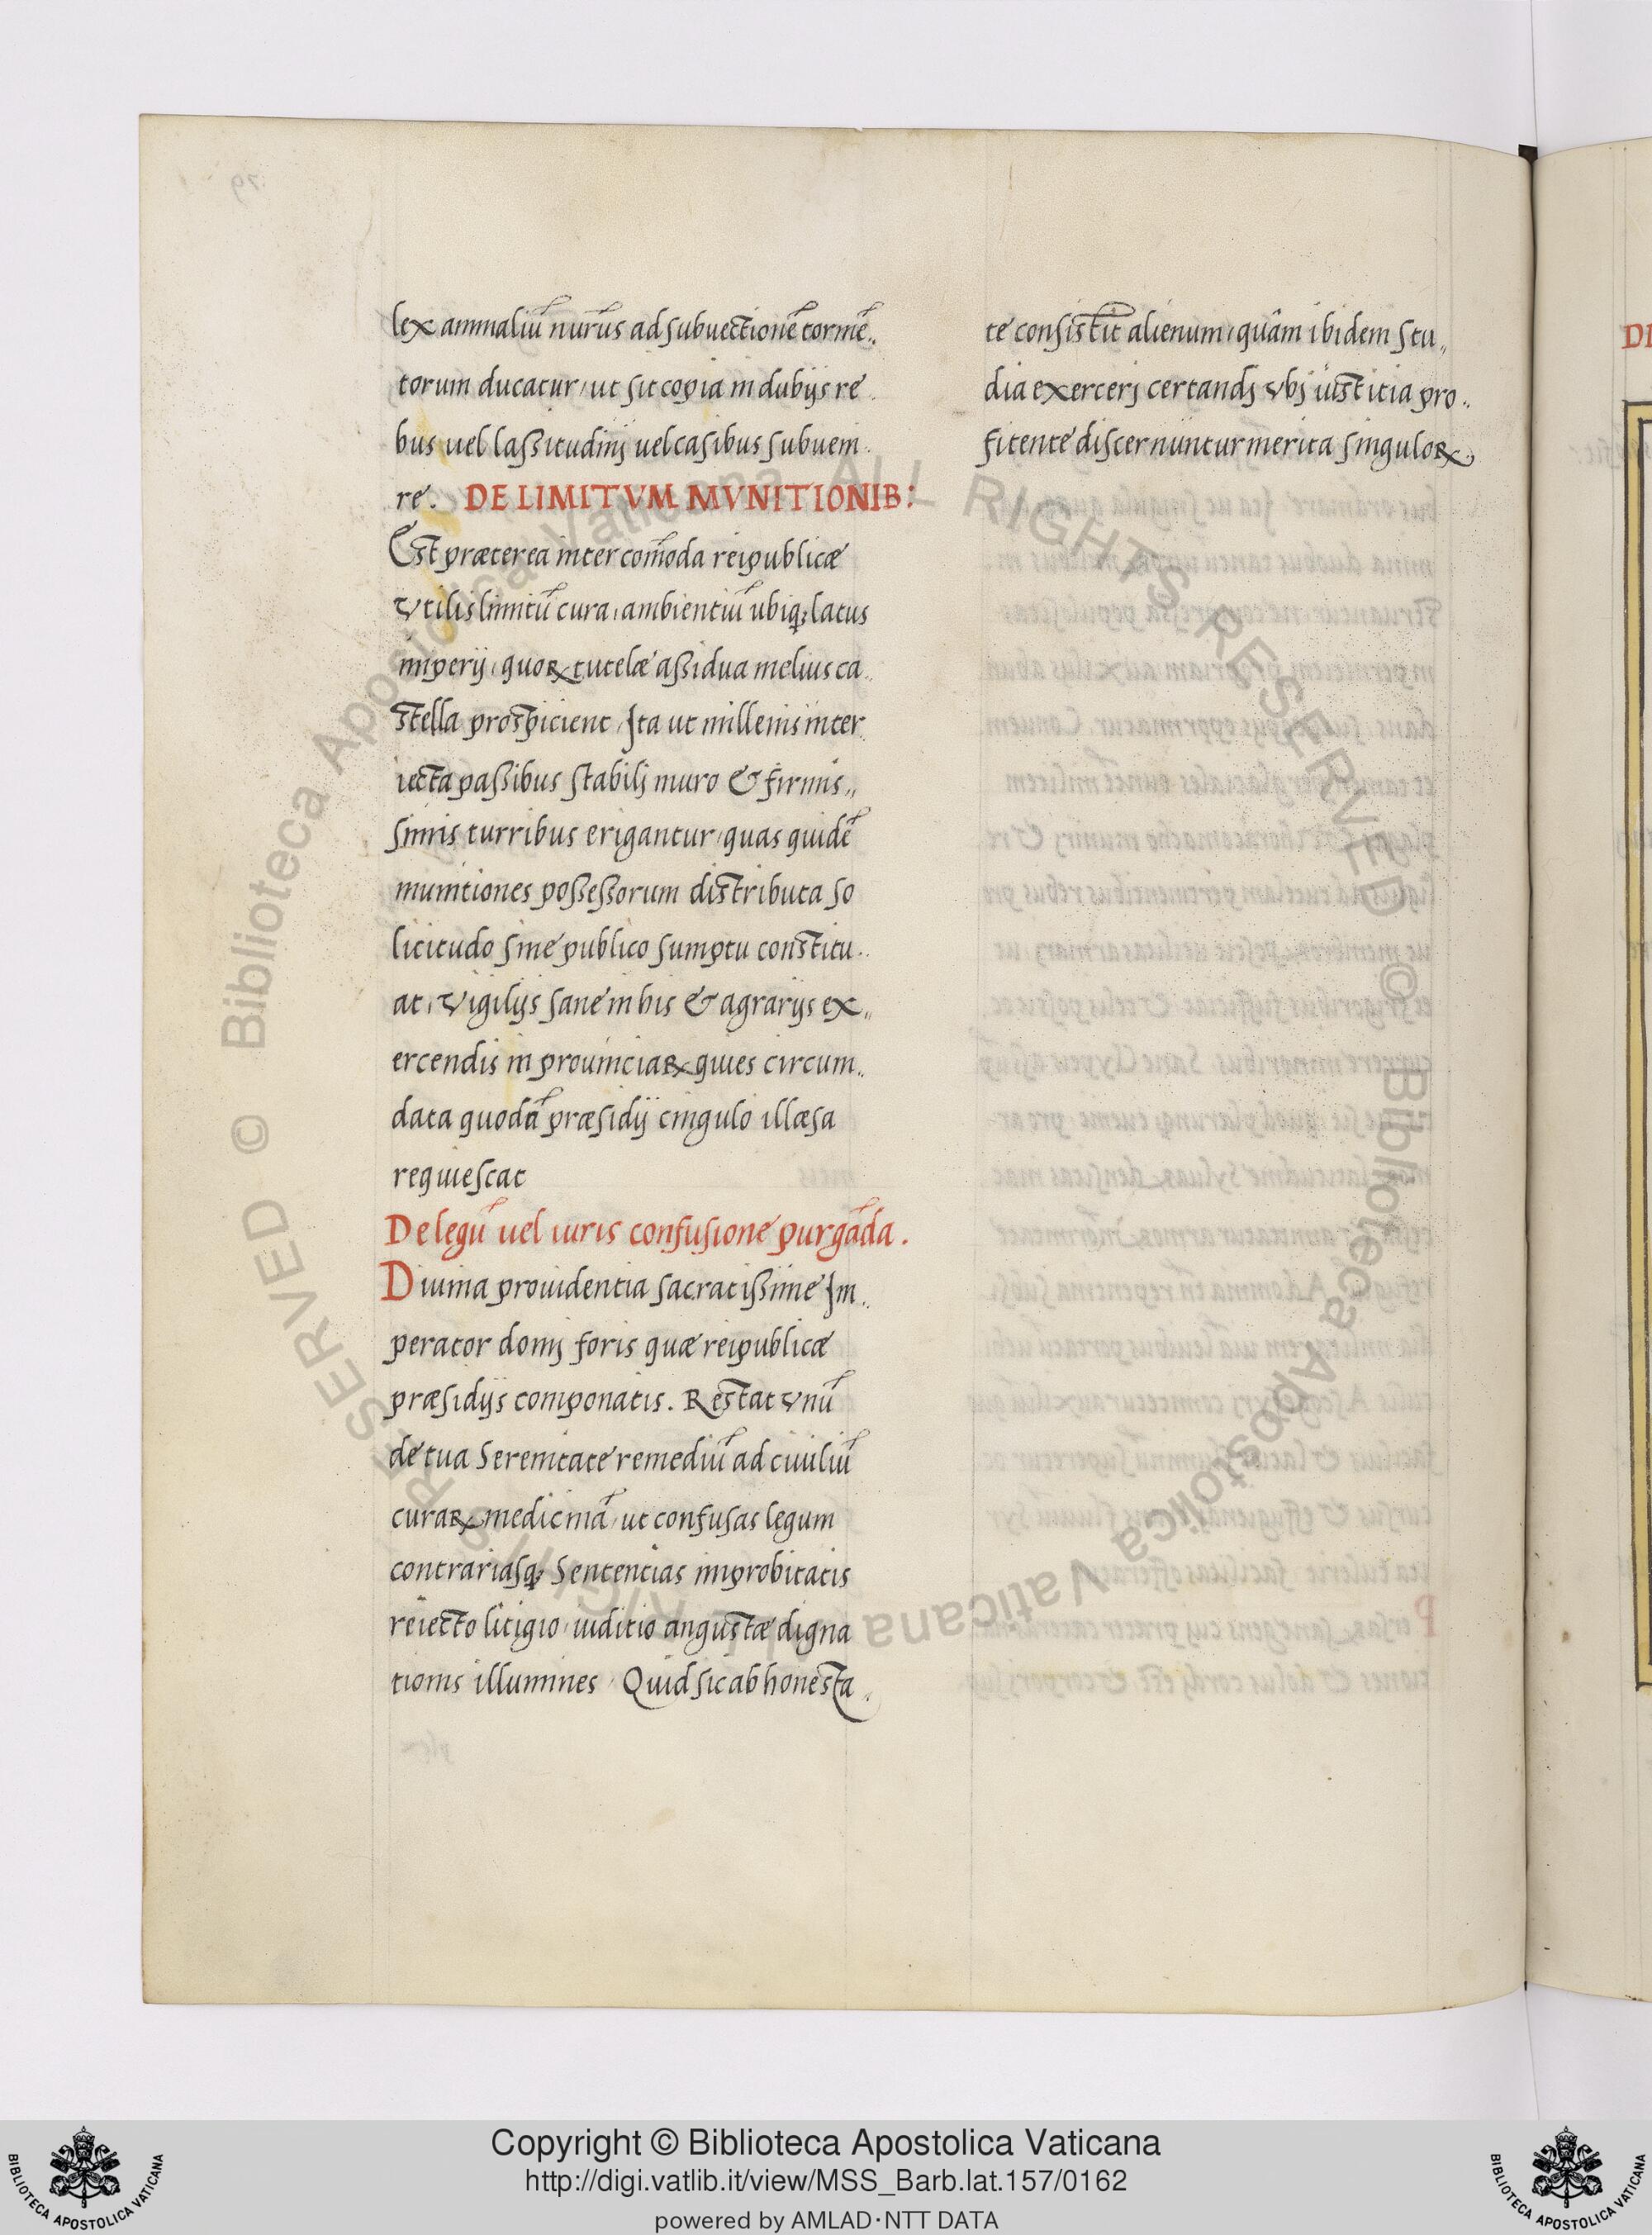 lex animaliū nurūs ad subuectionē tormē„
torum ducatur, ut sit copia in dubijs re
bus uel lassitudinj uel casibus subueni
re. DE LIMITVM MVNITIONIB:
Est præterea inter cōmoda reipublicæ
Vtilis limitū cura, ambientiū ubiq; latus
imperij, quoꝝ tutelæ assidua melius ca
stella prospicient, Ita ut millenis inter
iecta passibus stabilj muro & firmis„
simis turribus erigantur, quas quidē
munitiones possessorum distributa so
licitudo sine publico sumptu constitu
at, Vigilijs sane in his & agrarijs ex„
ercendis in prouinciaꝝ quies circum„
data quodā præsidij cingulo illæsa
requiescat
De legū uel iuris confusione purgāda.
Diuina prouidentia sacratissime Im„
perator domj foris quæ reipublicæ
præsidijs componatis. Restat Vnū
de tua Serenitate remediū ad ciuiliū
curaꝝ medicinā, ut confusas legum
contrariasq; Sententias improbitatis
reiecto litigio, iuditio angustæ digna
tionis illumines, Quid sic ab honesta
te consistit alienum, quâm ibidem stu„
dia exercerj certandj Vbj iustitia pro„
fitente discernuntur merita singuloꝝ
© Biblioteca Apostolica Vaticana ALL RIGHTS RESERVED © Biblioteca Apostolica Vaticana ALL RIGHTS RESERVED
DI
Copyright © Biblioteca Apostolica Vaticana
http://digi.vatlib.it/view/MSS_Barb.lat.157/0162
powered by AMLAD·NTT DATA
BIBLIOTECA APOSTOLICA VATICANA
BIBLIOTECA APOSTOLICA VATICANA